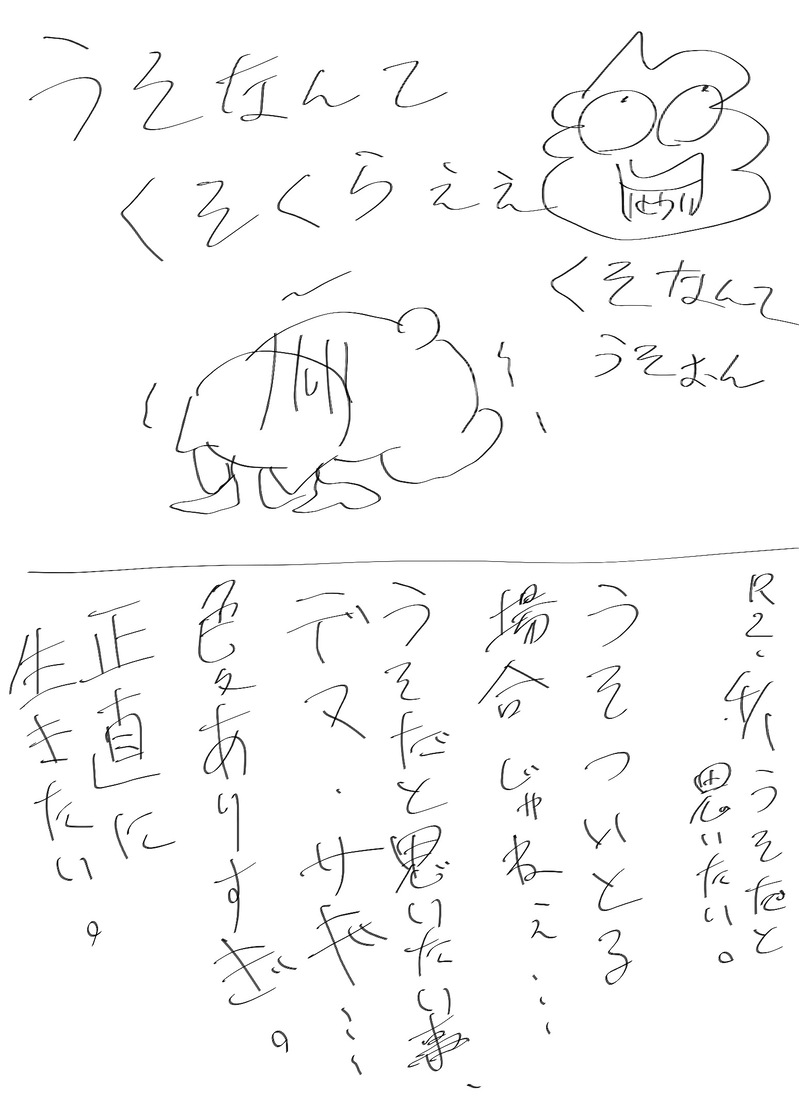 うそなんて
くそくらええ
くそなんて
うそよーん
うそだと
思いたい。
うそついとる
場合じゃねぇ…
うそだと思いたい事、
デス・サヤ…
色々ありすぎ。
正直に
生きたい。